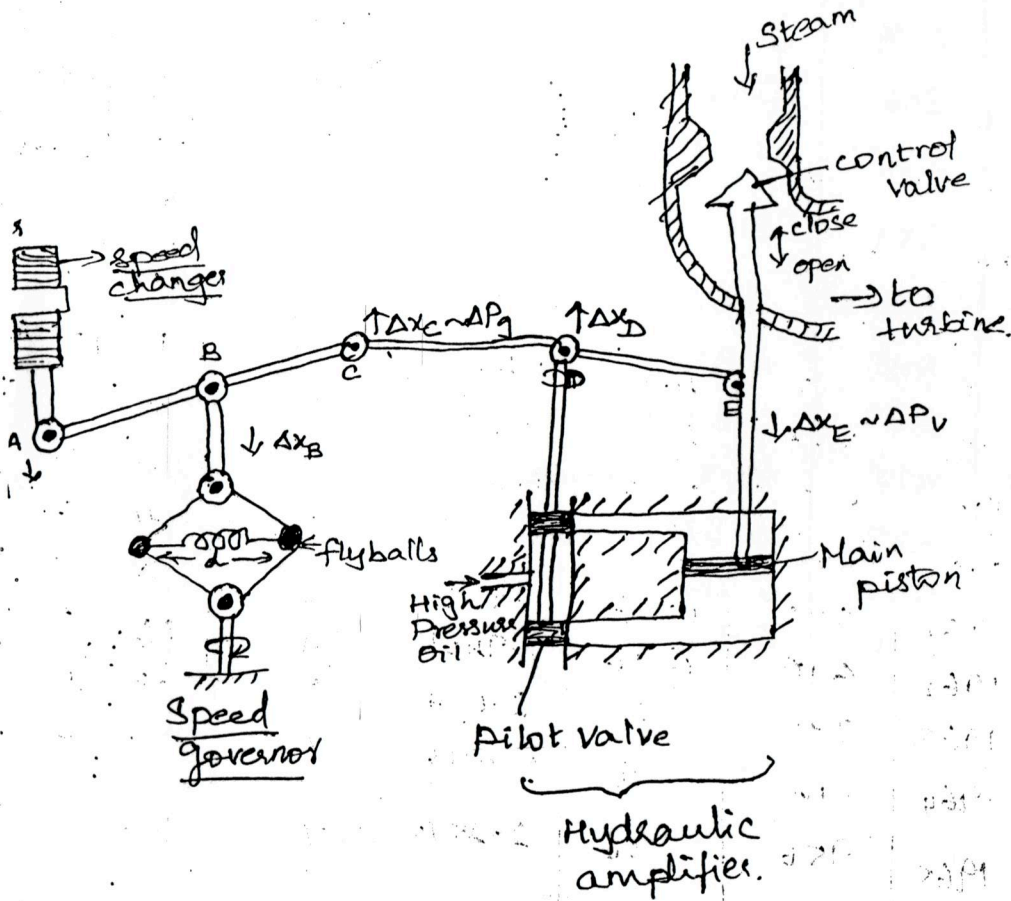 Steam
control
valve
close
open
to
turbine.
speed
changer
ΔxC ~ ΔPg
ΔxD
B
C
D
E
A
ΔxB
ΔxE ~ ΔPv
flyballs
d
High
Pressure
Oil
Main
piston
Speed
governor
pilot valve
Hydraulic
amplifier.